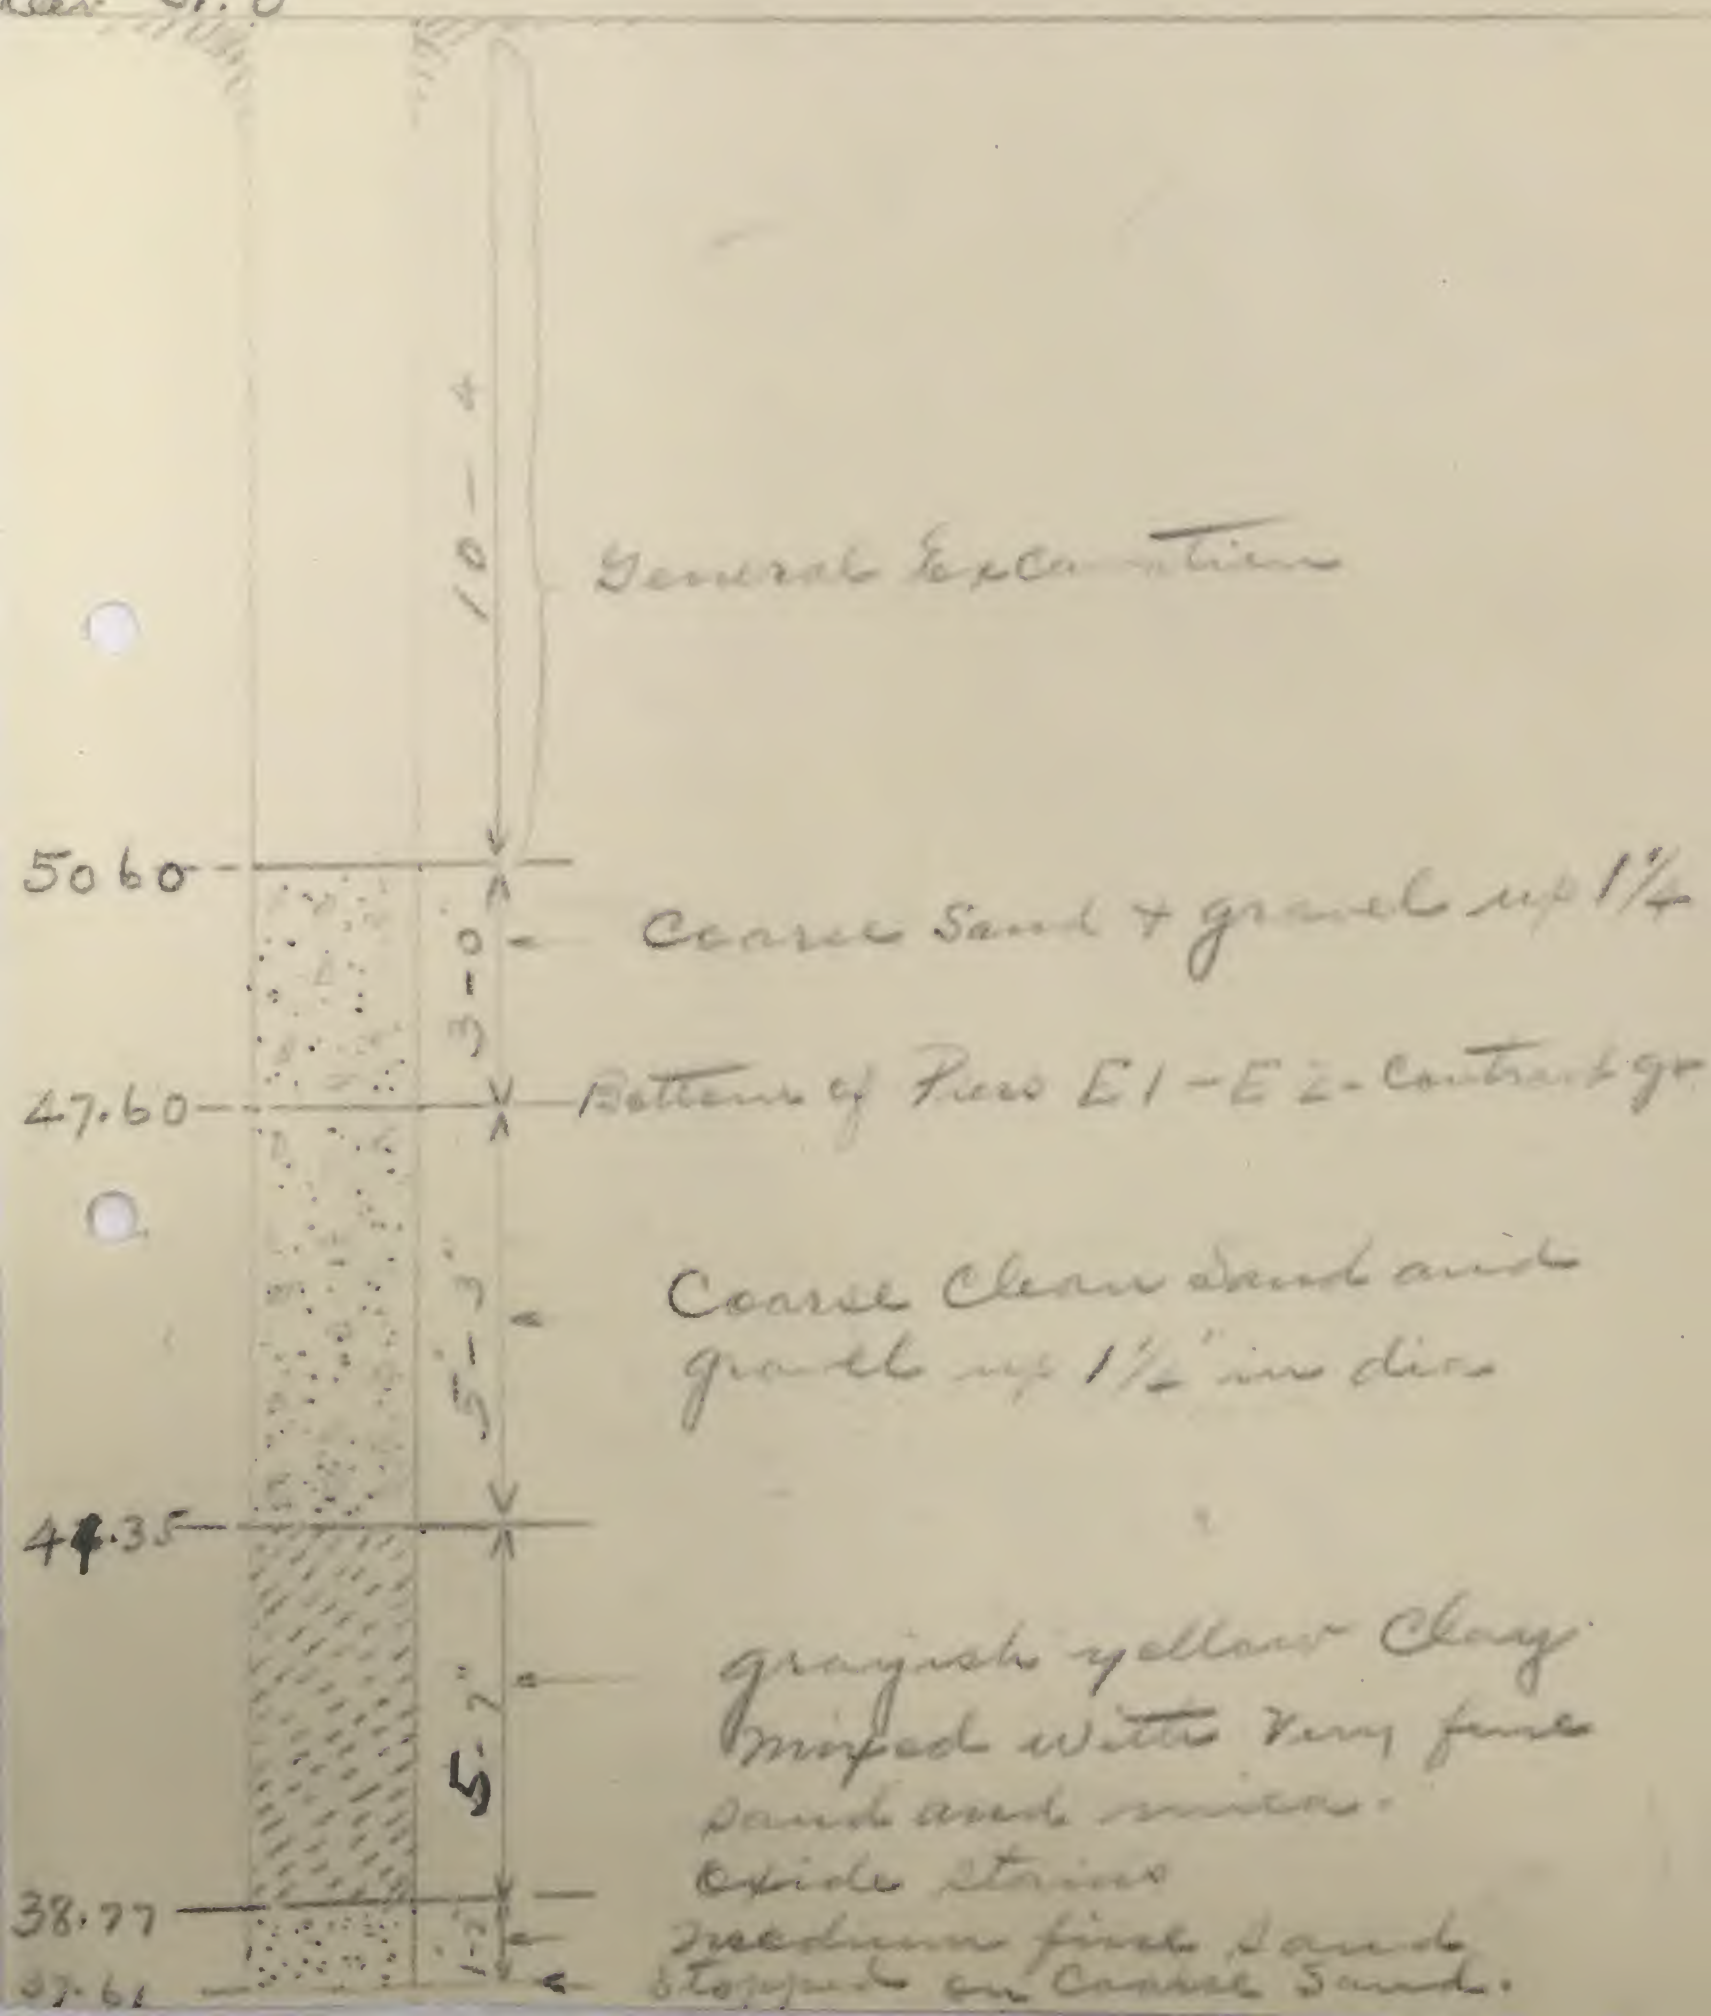 10-4
General Excavation
50 60
3-0
Coarse Sand + gravel up 1 1/4
47.60
Bottom of Piers E1-E2-Contract gr
5'-3"
Coarse Clean Sand and
gravel up 1 1/2" in dia
35
5-7"
grayish yellow Clay
mixed with Very fine
sand and mica.
Oxide stains
38.77
1-2"
medium fine sand
37.61
Stopped on Coarse Sand.